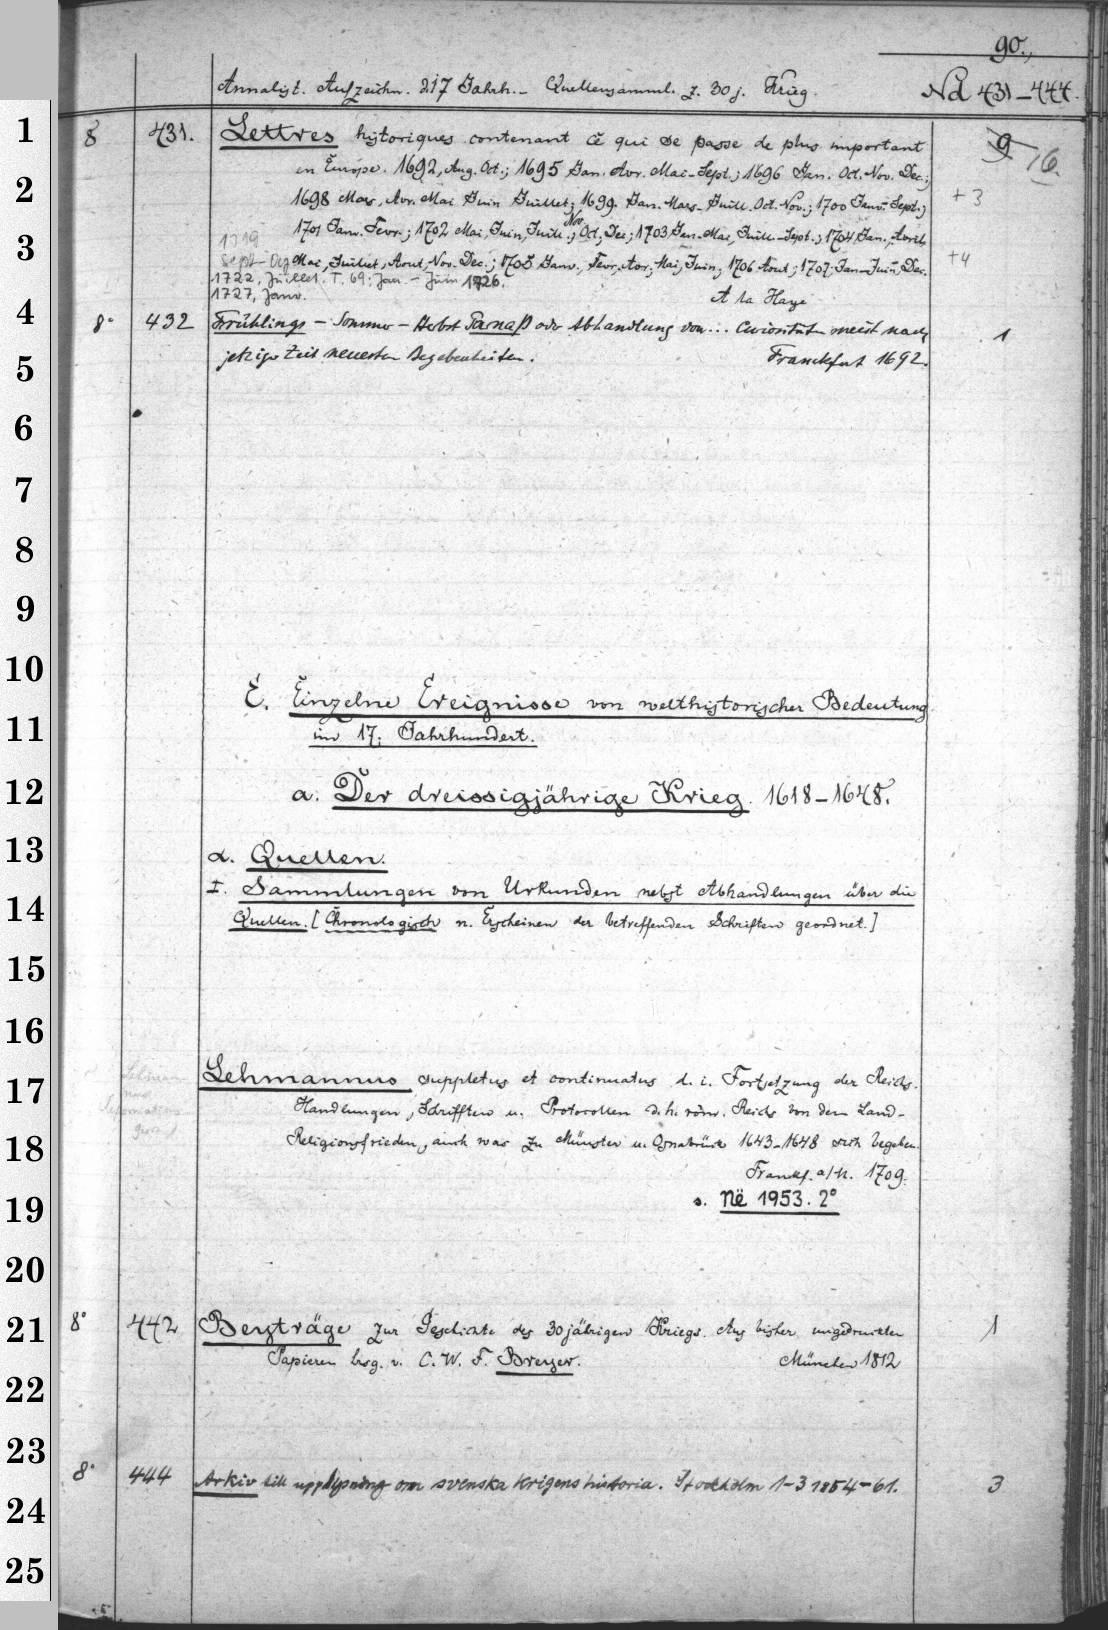 90.,
Annalist. Aufzeichn. d 17 Jahrh. – Quellensamml. z. 30 j. Krieg.
Nd 431–444.
1
8 431. Lettres historiques contenant ce qui se passe de plus important 9 16.
en Europe. 1692, Aug. Oct.; 1695 Jan. Avr. Mai–Sept.; 1696 Jan. Oct. Nov. Dec.;
2
1698 Mars, Avr. Mai Juin Juillet; 1699. Jan. Mars– Juill. Oct. Nov.; 1700 Janv–Sept.; + 3
Nov
1701 Janv. Fevr.; 1702 Mai, Juin, Juill.; Oct, Dec; 1703 Jan.–Mai, Juill–Sept.; 1704 Jan., Avril
3
1719
Sept– Mai, Juillet, Aout, Nov. Dec.; 1705 Janv., Fevr, Avr, Mai, Juin, 1706 Aout; 1707. Jan–Juin, Dec. +4
1722, Juillet. T. 69: Jan. – Juin 1726.
1727, Janv. A la Haye
4
8° 432 Frühlings – Sommer – Herbst Parnaß oder Abhandlung von... Curiosität meist nach 1
jetziger Zeit neuesten Begebenheiten. Franckfurt 1692.
5
6
7
8
9
10
E. Einzelne Ereignisse von welthistorischer Bedeutung
11
im 17. Jahrhundert.
12
a. Der dreissigjährige Krieg. 1618–1648.
13
α. Quellen.
I. Sammlungen von Urkunden nebst Abhandlungen über die
14
Quellen. [Chronologisch n. Erscheinen der betreffenden Schriften geordnet.]
15
16
17
Lehmannus suppletus et continuatus d. i. Fortsetzung der Reichs-
Handlungen, Schrifften u. Protocollen d. h. röm. Reichs von dem Land-
18
Religionsfrieden, auch was zu Münster u. Osnabrück 1643–1648 sich begeben.
Frankf. a/M. 1709.
19
s. Në 1953. 2°
20
21
8° 442 Beyträge zur Geschichte des 30jährigen Kriegs. Aus bisher ungedruckten 1
Papieren hrsg. v. C. W. F. Breyer. München 1812
22
23
8° 444 Arkiv till upplysning om svenska krigens historia. Stockholm 1–3 1854–61. 3
24
25